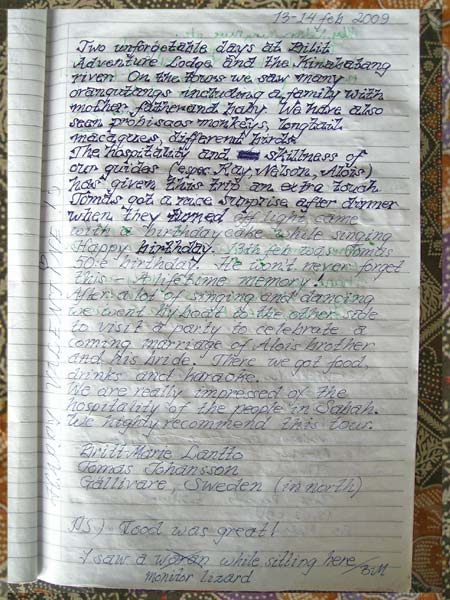 13-14 feb 2009
Two unforgetable days at Bilit
Adventure Lodge and the Kinabatang
river. On the tours we saw many
orangutangs including a family with
mother father and baby. We have also
seen probiscos monkeys, longtail
macaques, different birds.
The hospitality and skillness of
our guides (espec. Kay, Nelson, Alois)
has given this trip an extra touch.
Tomas got a nice surprise after dinner
when they turned off light came
with a birthday cake while singing
Happy birthday. 13th feb was Tomas
50:e birthday. He won't never forget
this - A lifetime memory!
After a lot of singing and dancing
we went by boat to the other side
to visit a party to celebrate a
coming marriage of Alois brother
and his bride. There we got food,
drinks and karaoke.
We are really impressed of the
hospitality of the people in Sabah.
We highly recommend this tour.
Britt-Marie Lantto
Tomas Johansson
Gällivare, Sweden (in north)
PS) Food was great!
I saw a woran while sitting here /BM
monitor lizard
HAPPY VALENTINE